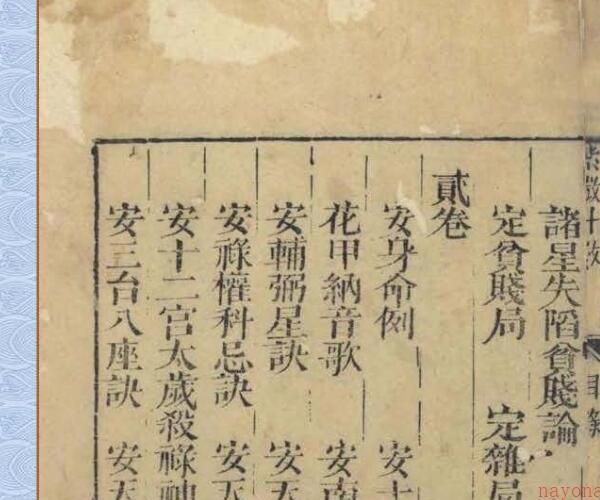 諸星失陷貧賤論
定貧賤局 定雜局
貳卷
安身命例
花甲納音歌 安南
安輔弼星訣 安天
安祿權科忌訣 安天
安十二宮太歲殺祿神
安三台八座訣 安天
nayona